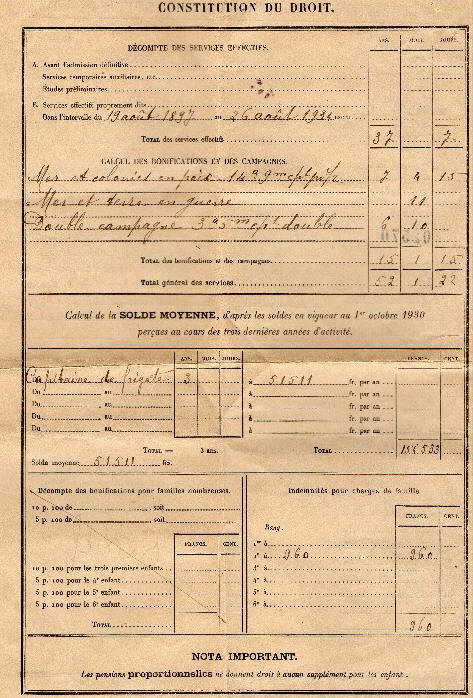 CONSTITUTION DU DROIT.
DÉCOMPTE DES SERVICES EFFECTIFS.
ANS. MOIS. JOURS.
A. Avant l'admission définitive
Services temporaires auxiliaires, etc.
Études préliminaires
B. Services effectifs proprement dits
Dans l'intervalle du 19 août 1897 au 26 août 1934
TOTAL des services effectifs 37 7
CALCUL DES BONIFICATIONS ET DES CAMPAGNES.
Mer et colonies en paix 14a 9m cpt 7 4 15
Mer et terre en guerre 11
Double campagne 3a 5m cpt double 6 10
Total des bonifications et des campagnes 15 1 15
Total général des services 52 1 22
Calcul de la SOLDE MOYENNE, d'après les soldes en vigueur au 1er octobre 1930
perçues au cours des trois dernières années d'activité.
ANS. MOIS. JOURS. FRANCS. CENT.
Capitaine de frégate 3 à 51511 fr. par an
Du au à fr. par an
Du au à fr. par an
Du au à fr. par an
Du au à fr. par an
TOTAL = 3 ans. TOTAL 154533
Solde moyenne 51511 frs.
Décompte des bonifications pour familles nombreuses.
10 p. 100 de soit
5 p. 100 de soit
FRANCS. CENT.
10 p. 100 pour les trois premiers enfants
5 p. 100 pour le 4e enfant
5 p. 100 pour le 5e enfant
5 p. 100 pour le 6e enfant
TOTAL
Indemnités pour charges de famille
FRANCS. CENT.
Rang.
1er à
à 960 960
3e à
4e à
5e à
6e à
960
NOTA IMPORTANT.
Les pensions proportionnelles ne donnent droit à aucun supplément pour les enfants.